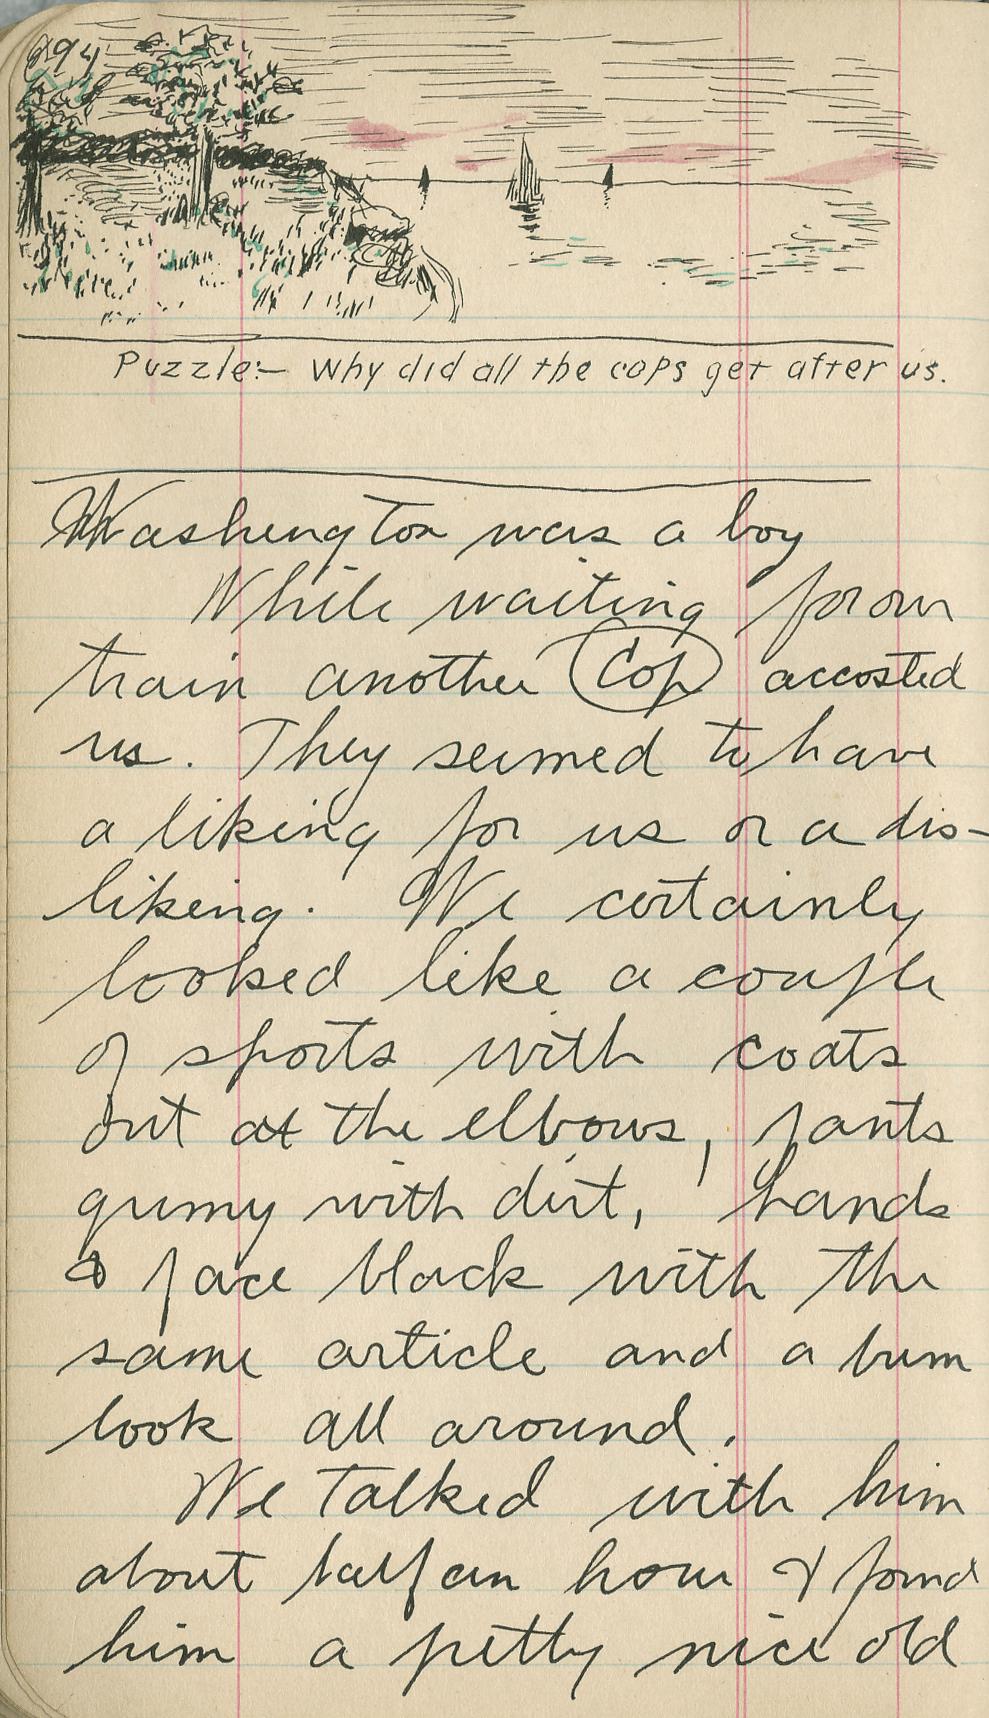 294
Puzzle:- Why did all the cops get after us.
Washington was a boy
While waiting for our
train another Cop accosted
us. They seemed to have
a liking for us or a dis-
liking. We certainly
looked like a couple
of sports with coats
out at the elbows, pants
grimy with dirt, hands
& face black with the
same article and a bum
look all around.
We talked with him
about half an hour & found
him a petty nice old